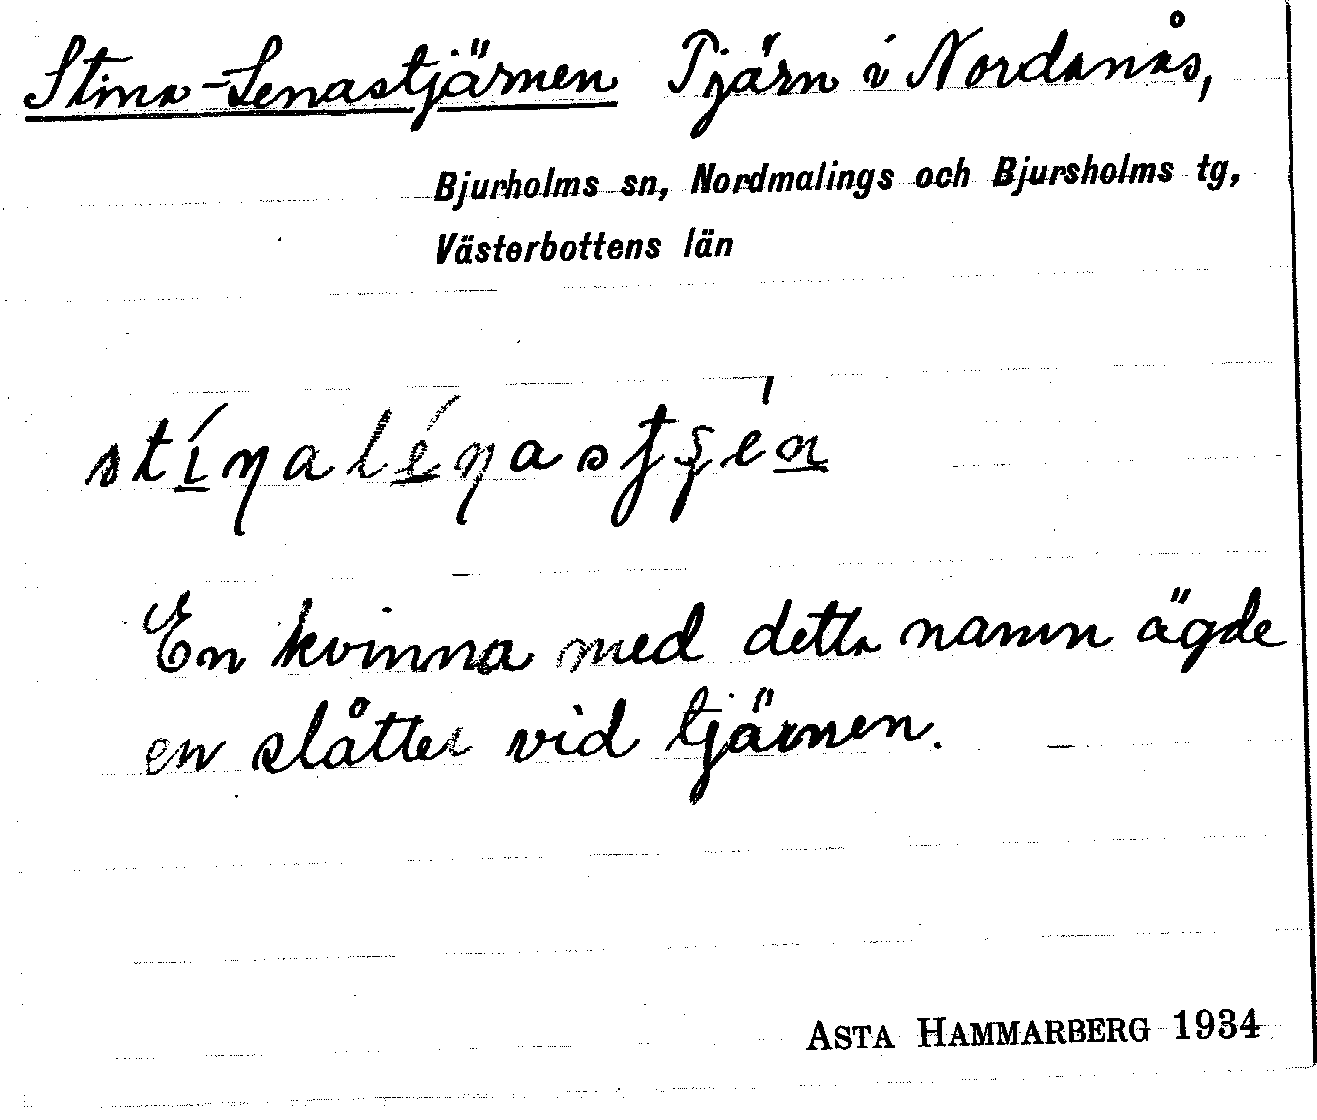 Stina-Lenastjärnen Tjärn i Nordanås,
Bjurholms sn, Nordmalings och Bjursholms tg,
Västerbottens län
En kvinna med detta namn ägde
en slåtter vid tjärnen.
ASTA HAMMARBERG 1934